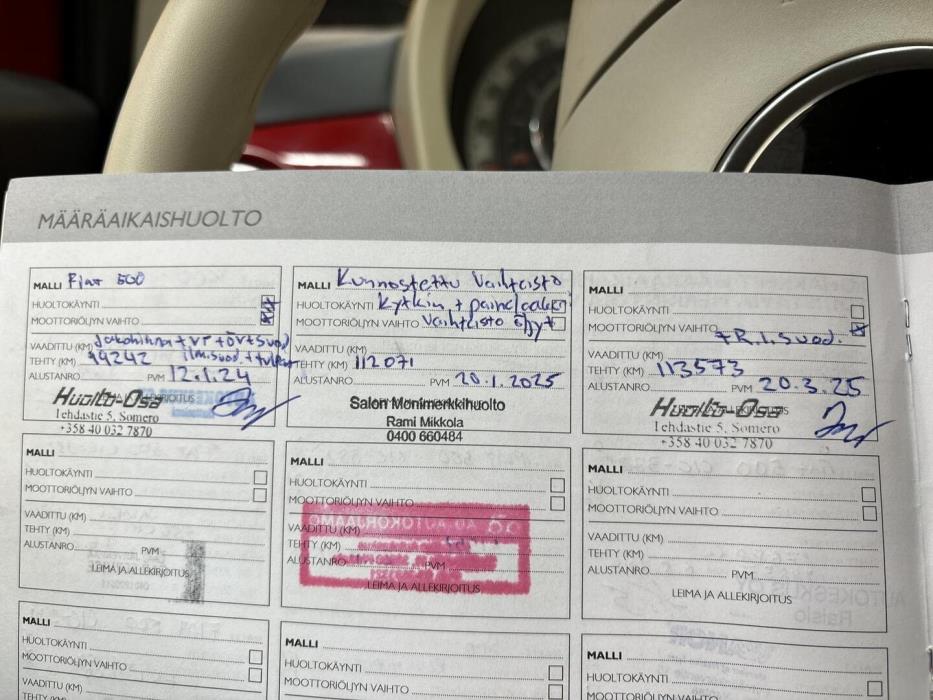 MÄÄRÄAIKAISHUOLTO
MALLI Fiat 500
HUOLTOKÄYNTI
MOOTTORIÖLJYN VAIHTO
VAADITTU (KM) Jakohihna + VP + ÖV + Suod
TEHTY (KM) 99242 ilm.suod + tulpat
ALUSTANRO PVM 12.1.24
LEIMA JA ALLEKIRJOITUS
Huolto-Osa
Tehdastie 5, Somero
+358 40 032 7870
MALLI Kunnostettu Vaihteisto
HUOLTOKÄYNTI Kytkin + painelaakeri
MOOTTORIÖLJYN VAIHTO Vaihteisto öljyt
VAADITTU (KM)
TEHTY (KM) 112071
ALUSTANRO PVM 20.1.2025
Salon Monimerkkihuolto
Rami Mikkola
0400 660484
MALLI
HUOLTOKÄYNTI
MOOTTORIÖLJYN VAIHTO + R.I. Suod.
VAADITTU (KM)
TEHTY (KM) 113573
ALUSTANRO PVM 20.3.25
LEIMA JA ALLEKIRJOITUS
Huolto-Osa
Tehdastie 5, Somero
+358 40 032 7870
MALLI
HUOLTOKÄYNTI
MOOTTORIÖLJYN VAIHTO
VAADITTU (KM)
TEHTY (KM)
ALUSTANRO PVM
LEIMA JA ALLEKIRJOITUS
MALLI
HUOLTOKÄYNTI
MOOTTORIÖLJYN VAIHTO
VAADITTU (KM)
TEHTY (KM)
ALUSTANRO PVM
LEIMA JA ALLEKIRJOITUS
MALLI
HUOLTOKÄYNTI
MOOTTORIÖLJYN VAIHTO
VAADITTU (KM)
TEHTY (KM)
ALUSTANRO PVM
LEIMA JA ALLEKIRJOITUS
MALLI
HUOLTOKÄYNTI
MOOTTORIÖLJYN VAIHTO
VAADITTU (KM)
TEHTY (KM)
MALLI
HUOLTOKÄYNTI
MOOTTORIÖLJYN VAIHTO
VAADITTU (KM)
MALLI
HUOLTOKÄYNTI
MOOTTORIÖLJYN VAIHTO